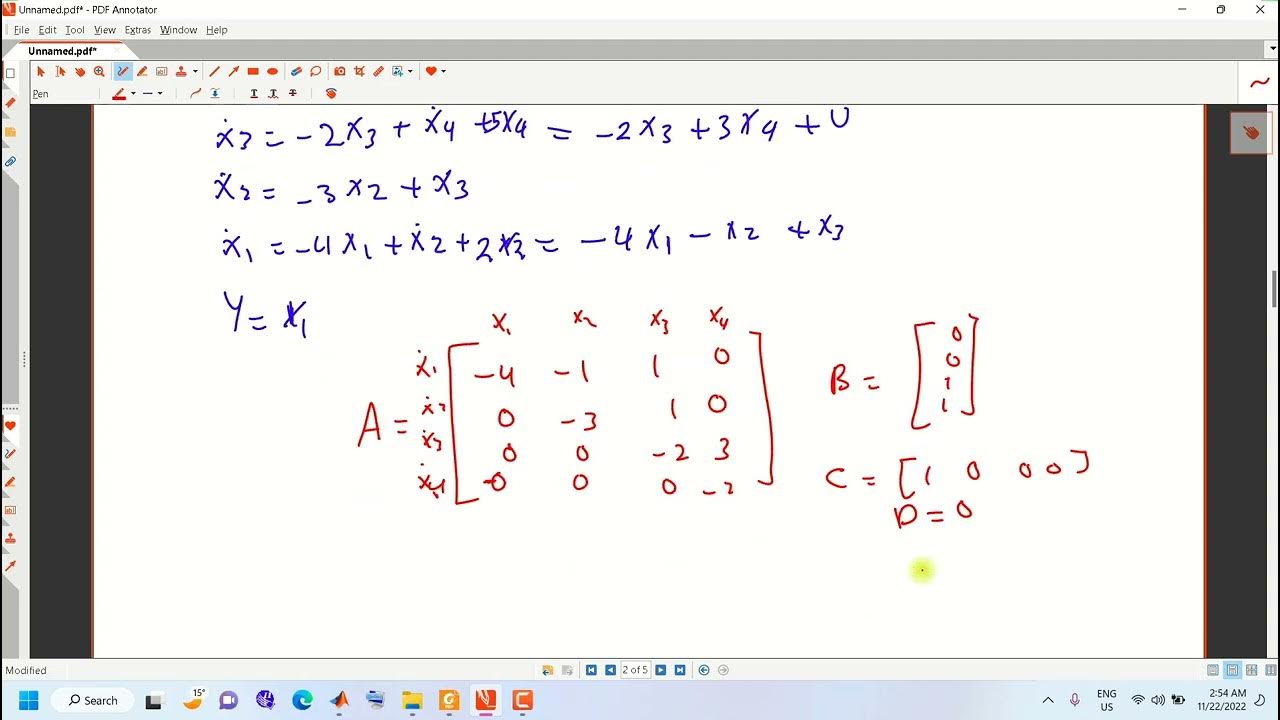 Unnamed.pdf* - PDF Annotator
File Edit Tool View Extras Window Help
Unnamed.pdf*
Pen
ẋ3 = -2x3 + ẋ4 +5x4 = -2x3 +3x4 + U
ẋ2 = -3x2 + x3
ẋ1 = -4x1 + ẋ2 + 2x2 = -4x1 - x2 + x3
Y = x1
x1 x2 x3 x4
A =
ẋ1 -4 -1 1 0
ẋ2 0 -3 1 0
ẋ3 0 0 -2 3
ẋ4 0 0 0 -2
B = [0 0 1 1]
C = [1 0 0 0]
D = 0
Modified
2 of 5
15°
Search
ENG
US
2:54 AM
11/22/2022